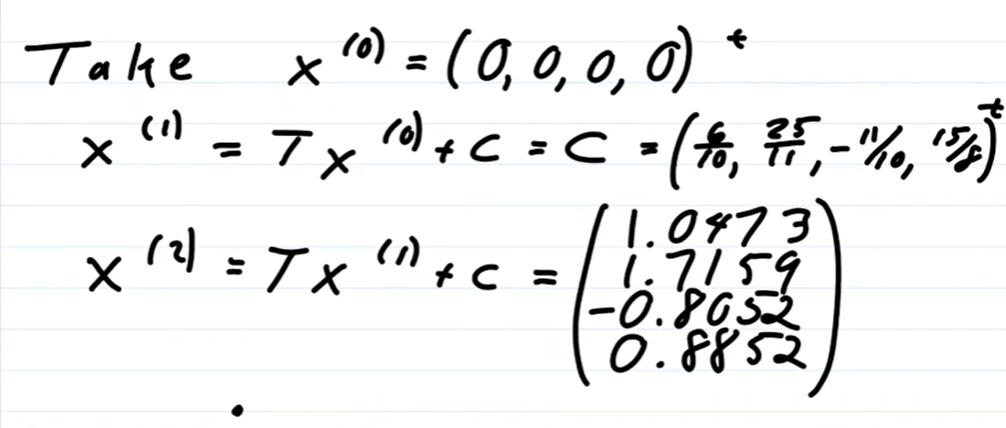 Take x^(0) = (0, 0, 0, 0)^t
x^(1) = Tx^(0) + c = C = (6/10, 25/11, -11/10, 15/8)^t
x^(2) = Tx^(1) + c = (1.0473
1.7159
-0.8052
0.8852)